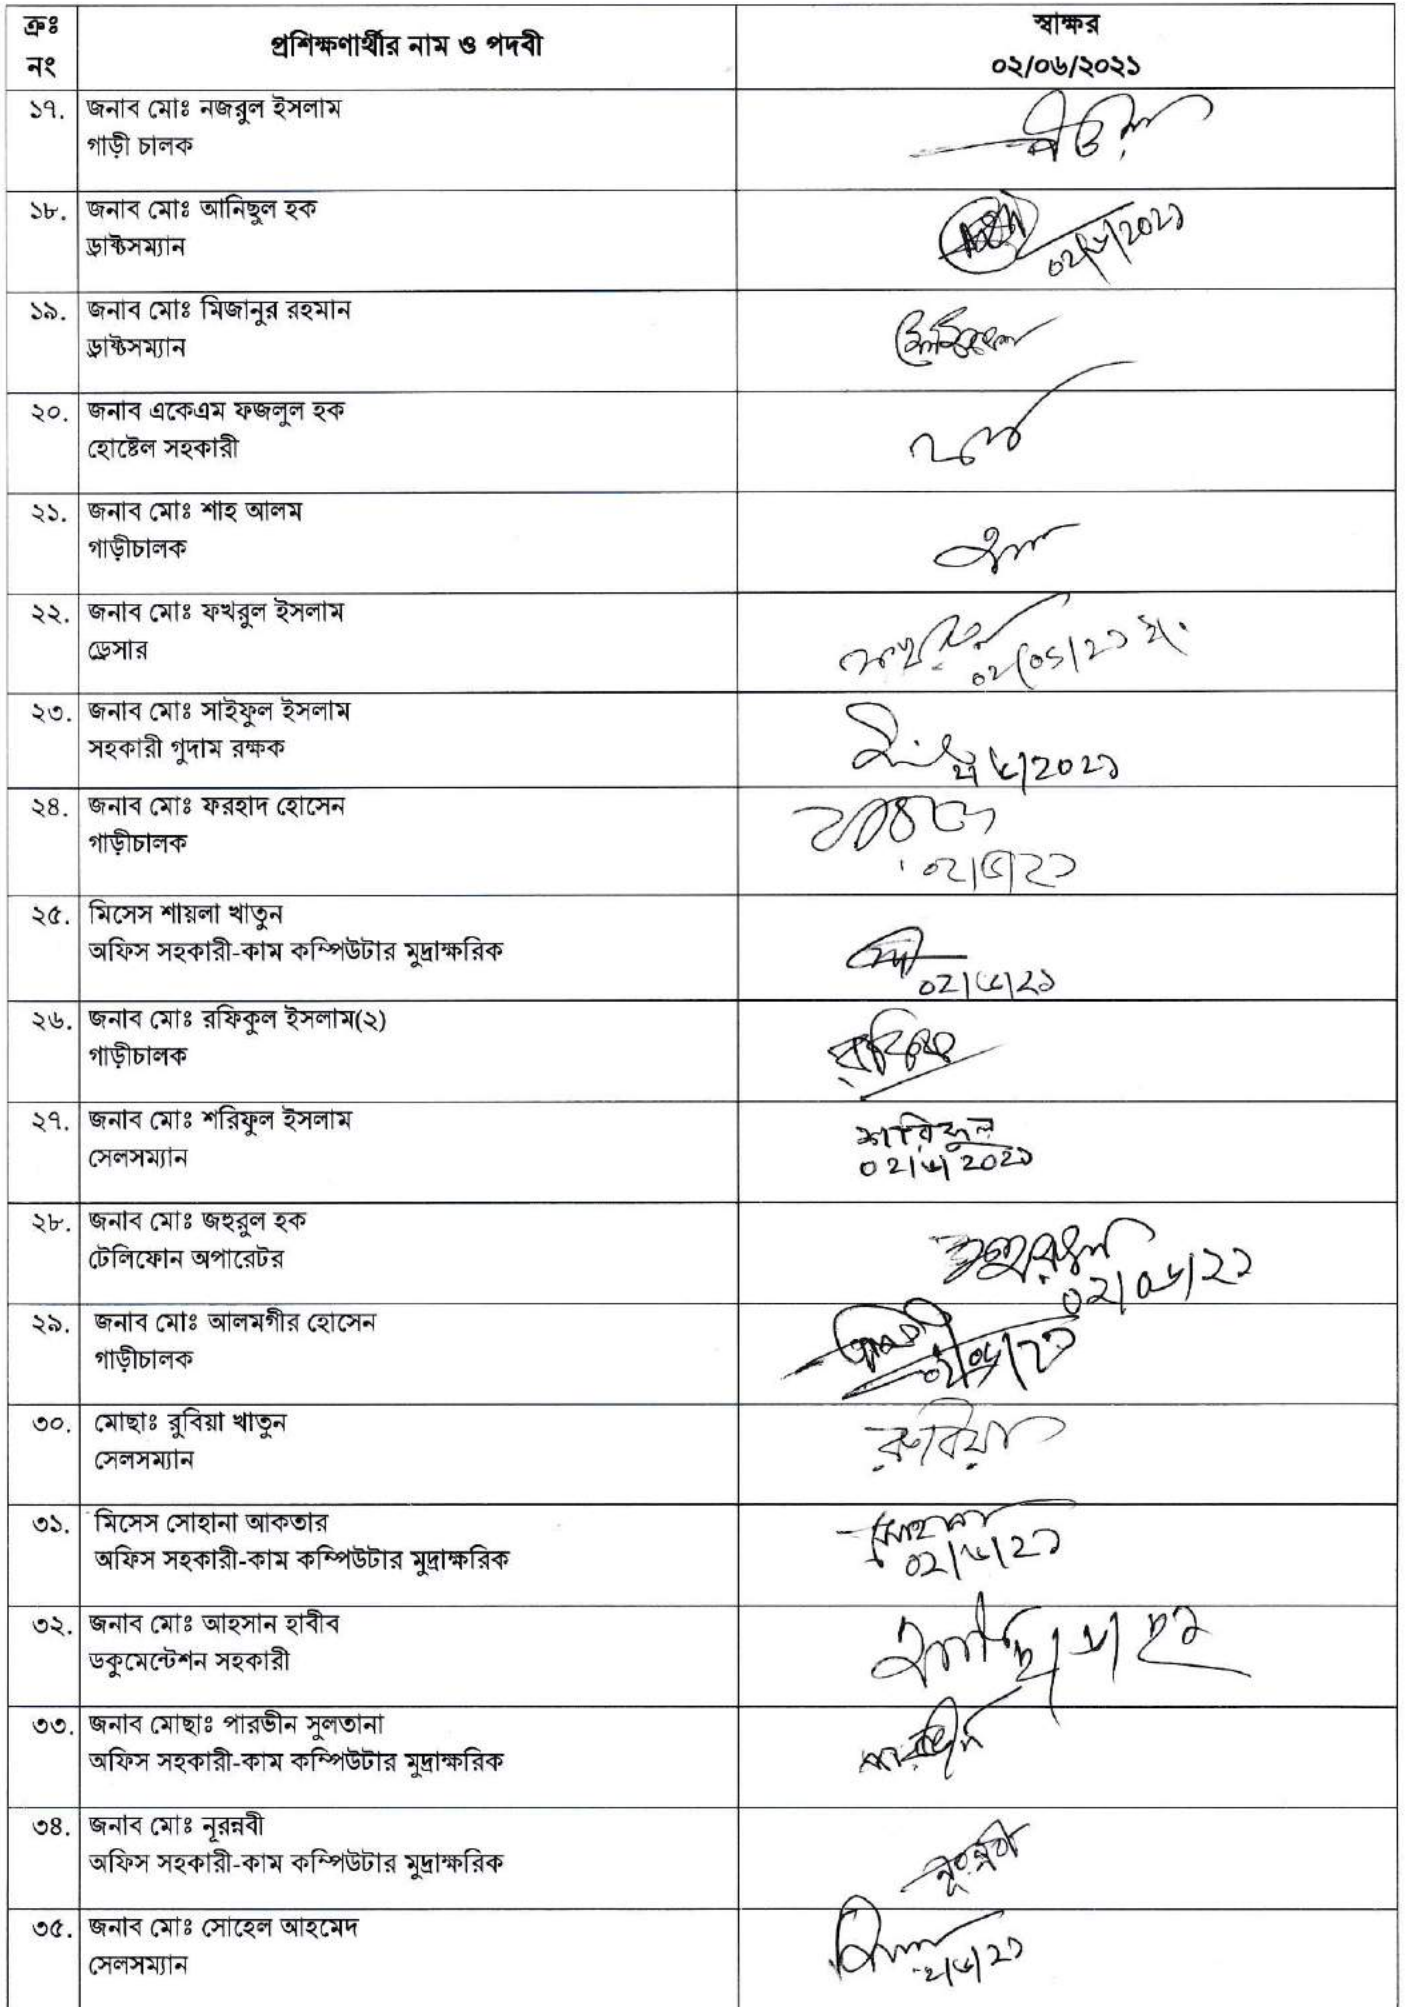 ক্রঃ
নং
প্রশিক্ষণার্থীর নাম ও পদবী
স্বাক্ষর
০২/০৬/২০২১
১৭. জনাব মোঃ নজরুল ইসলাম
গাড়ী চালক
১৮. জনাব মোঃ আনিছুল হক
ড্রাফ্টসম্যান
০২/৬/২০২১
১৯. জনাব মোঃ মিজানুর রহমান
ড্রাফ্টসম্যান
২০. জনাব একেএম ফজলুল হক
হোষ্টেল সহকারী
২১. জনাব মোঃ শাহ আলম
গাড়ীচালক
২২. জনাব মোঃ ফখরুল ইসলাম
ড্রেসার
২৩. জনাব মোঃ সাইফুল ইসলাম
সহকারী গুদাম রক্ষক
২৪. জনাব মোঃ ফরহাদ হোসেন
গাড়ীচালক
০২/৬/২১
২৫. মিসেস শায়লা খাতুন
অফিস সহকারী-কাম কম্পিউটার মুদ্রাক্ষরিক
০২/৬/২১
২৬. জনাব মোঃ রফিকুল ইসলাম(২)
গাড়ীচালক
২৭. জনাব মোঃ শরিফুল ইসলাম
সেলসম্যান
শরিফুল
০২/৬/২০২১
২৮. জনাব মোঃ জহুরুল হক
টেলিফোন অপারেটর
০২/০৬/২১
২৯. জনাব মোঃ আলমগীর হোসেন
গাড়ীচালক
৩০. মোছাঃ রুবিয়া খাতুন
সেলসম্যান
রুবিয়া
৩১. মিসেস সোহানা আকতার
অফিস সহকারী-কাম কম্পিউটার মুদ্রাক্ষরিক
সোহানা
০২/৬/২১
৩২. জনাব মোঃ আহসান হাবীব
ডকুমেন্টেশন সহকারী
৩৩. জনাব মোছাঃ পারভীন সুলতানা
অফিস সহকারী-কাম কম্পিউটার মুদ্রাক্ষরিক
পারভীন
৩৪. জনাব মোঃ নূরন্নবী
অফিস সহকারী-কাম কম্পিউটার মুদ্রাক্ষরিক
নূরন্নবী
৩৫. জনাব মোঃ সোহেল আহমেদ
সেলসম্যান
২/৬/২১